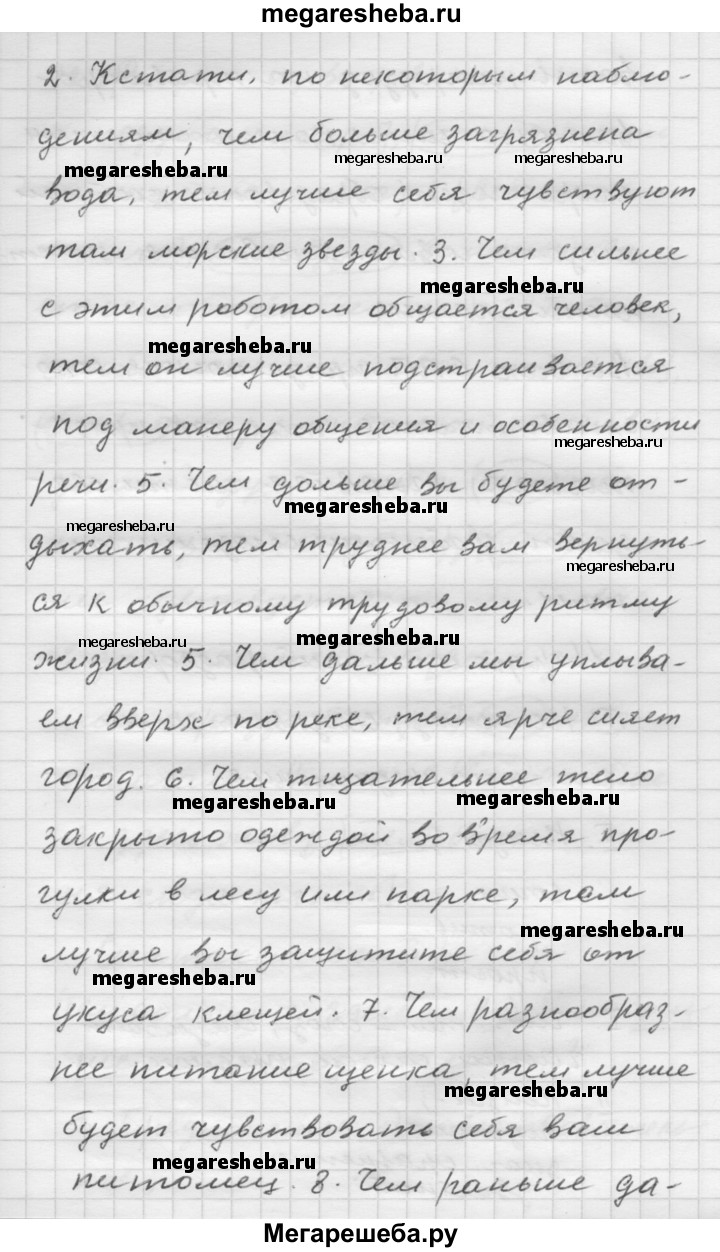 megaresheba.ru
2. Кстати, по некоторым наблю-
дениям, чем больше загрязнена
megaresheba.ru megaresheba.ru megaresheba.ru
вода, тем лучше себя чувствуют
там морские звезды. 3. Чем сильнее
megaresheba.ru
с этим роботом общается человек,
megaresheba.ru
тем он лучше подстраивается
под манеру общения и особенности
megaresheba.ru
речи. 5. Чем дольше вы будете от-
megaresheba.ru
megaresheba.ru
дыхать, тем труднее вам вернуть-
megaresheba.ru
ся к обычному трудовому ритму
megaresheba.ru megaresheba.ru
жизни. 5. Чем дальше мы уплыва-
ем вверх по реке, тем ярче сияет
город. 6. Чем тщательнее тело
megaresheba.ru megaresheba.ru
закрыто одеждой во время про-
гулки в лесу или парке, тем
megaresheba.ru
лучше вы защитите себя от
megaresheba.ru
укуса клещей. 7. Чем разнообраз-
нее питание щенка, тем лучше
megaresheba.ru
будет чувствовать себя ваш
megaresheba.ru
питомец. 8. Чем раньше да-
Мегарешеба.ру